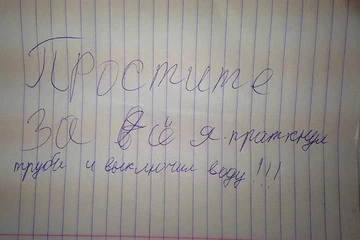 Простите
За всё я праткнул
труби и выключил воду!!!